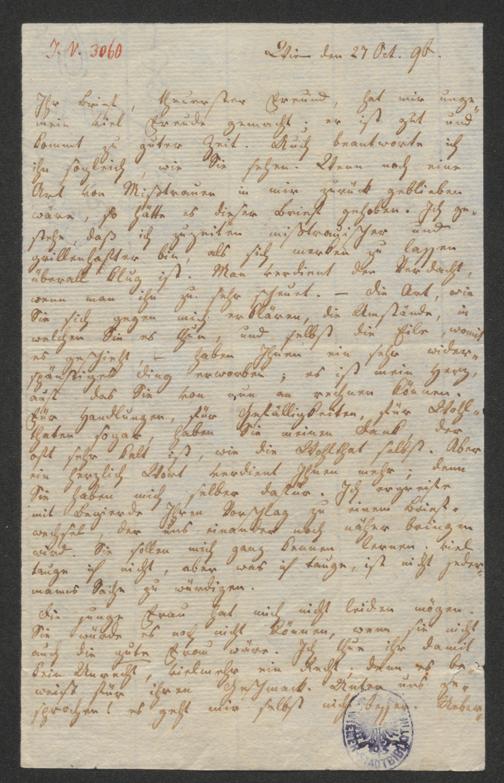 J. N. 3060
Wien den 27 Oct. 96.
Ihr Brief, theuerster Freund, hat mir unge-
mein viel Freude gemacht; er ist gut und
kommt zu guter Zeit. Auch beantworte ich
ihn sogleich, wie Sie sehen. Wenn noch eine
Art von Mißtrauen in mir zurück geblieben
wäre, so hätte es dieser Brief gehoben. Ich ge-
stehe, daß ich zuzeiten mißtrauischer und
grillenhafter bin, als sich merken zu lassen
überall klug ist. Man verdient den Verdacht,
wenn man ihn zu sehr scheuet. – Die Art, wie
Sie sich gegen mich erklären, die Umstände, in
welchen Sie es thun, und selbst die Eile, womit
es geschieht, – haben Ihnen ein sehr wider-
spänstiges Ding erworben; es ist mein Herz,
auf das Sie von nun an rechnen können.
Für Handlungen, für Gefälligkeiten, für Wohl-
thaten sogar, haben Sie meinen Dank der
oft sehr kalt ist, wie die Wohlthat selbst. Aber
ein herzlich Wort verdient Ihnen mehr; denn
Sie haben mich selber dafür. Ich ergreife
mit Begierde Ihren Vorschlag zu einem Brief-
wechsel, der uns einander noch näher bringen
wird. Sie sollen mich ganz kennen lernen, viel
tauge ich nicht, aber was ich tauge, ist nicht jeder-
manns Sache zu würdigen.
Die junge Frau hat mich nicht leiden mögen.
Sie würde es noch nicht können, wenn sie nicht
auch die gute Frau wäre. Ich thue ihr damit
kein Unrecht, vielmehr ein Recht; denn es be-
weist für ihren Geschmack. Unter uns ge-
sprochen! es geht mir selbst nicht besser. Ueber-